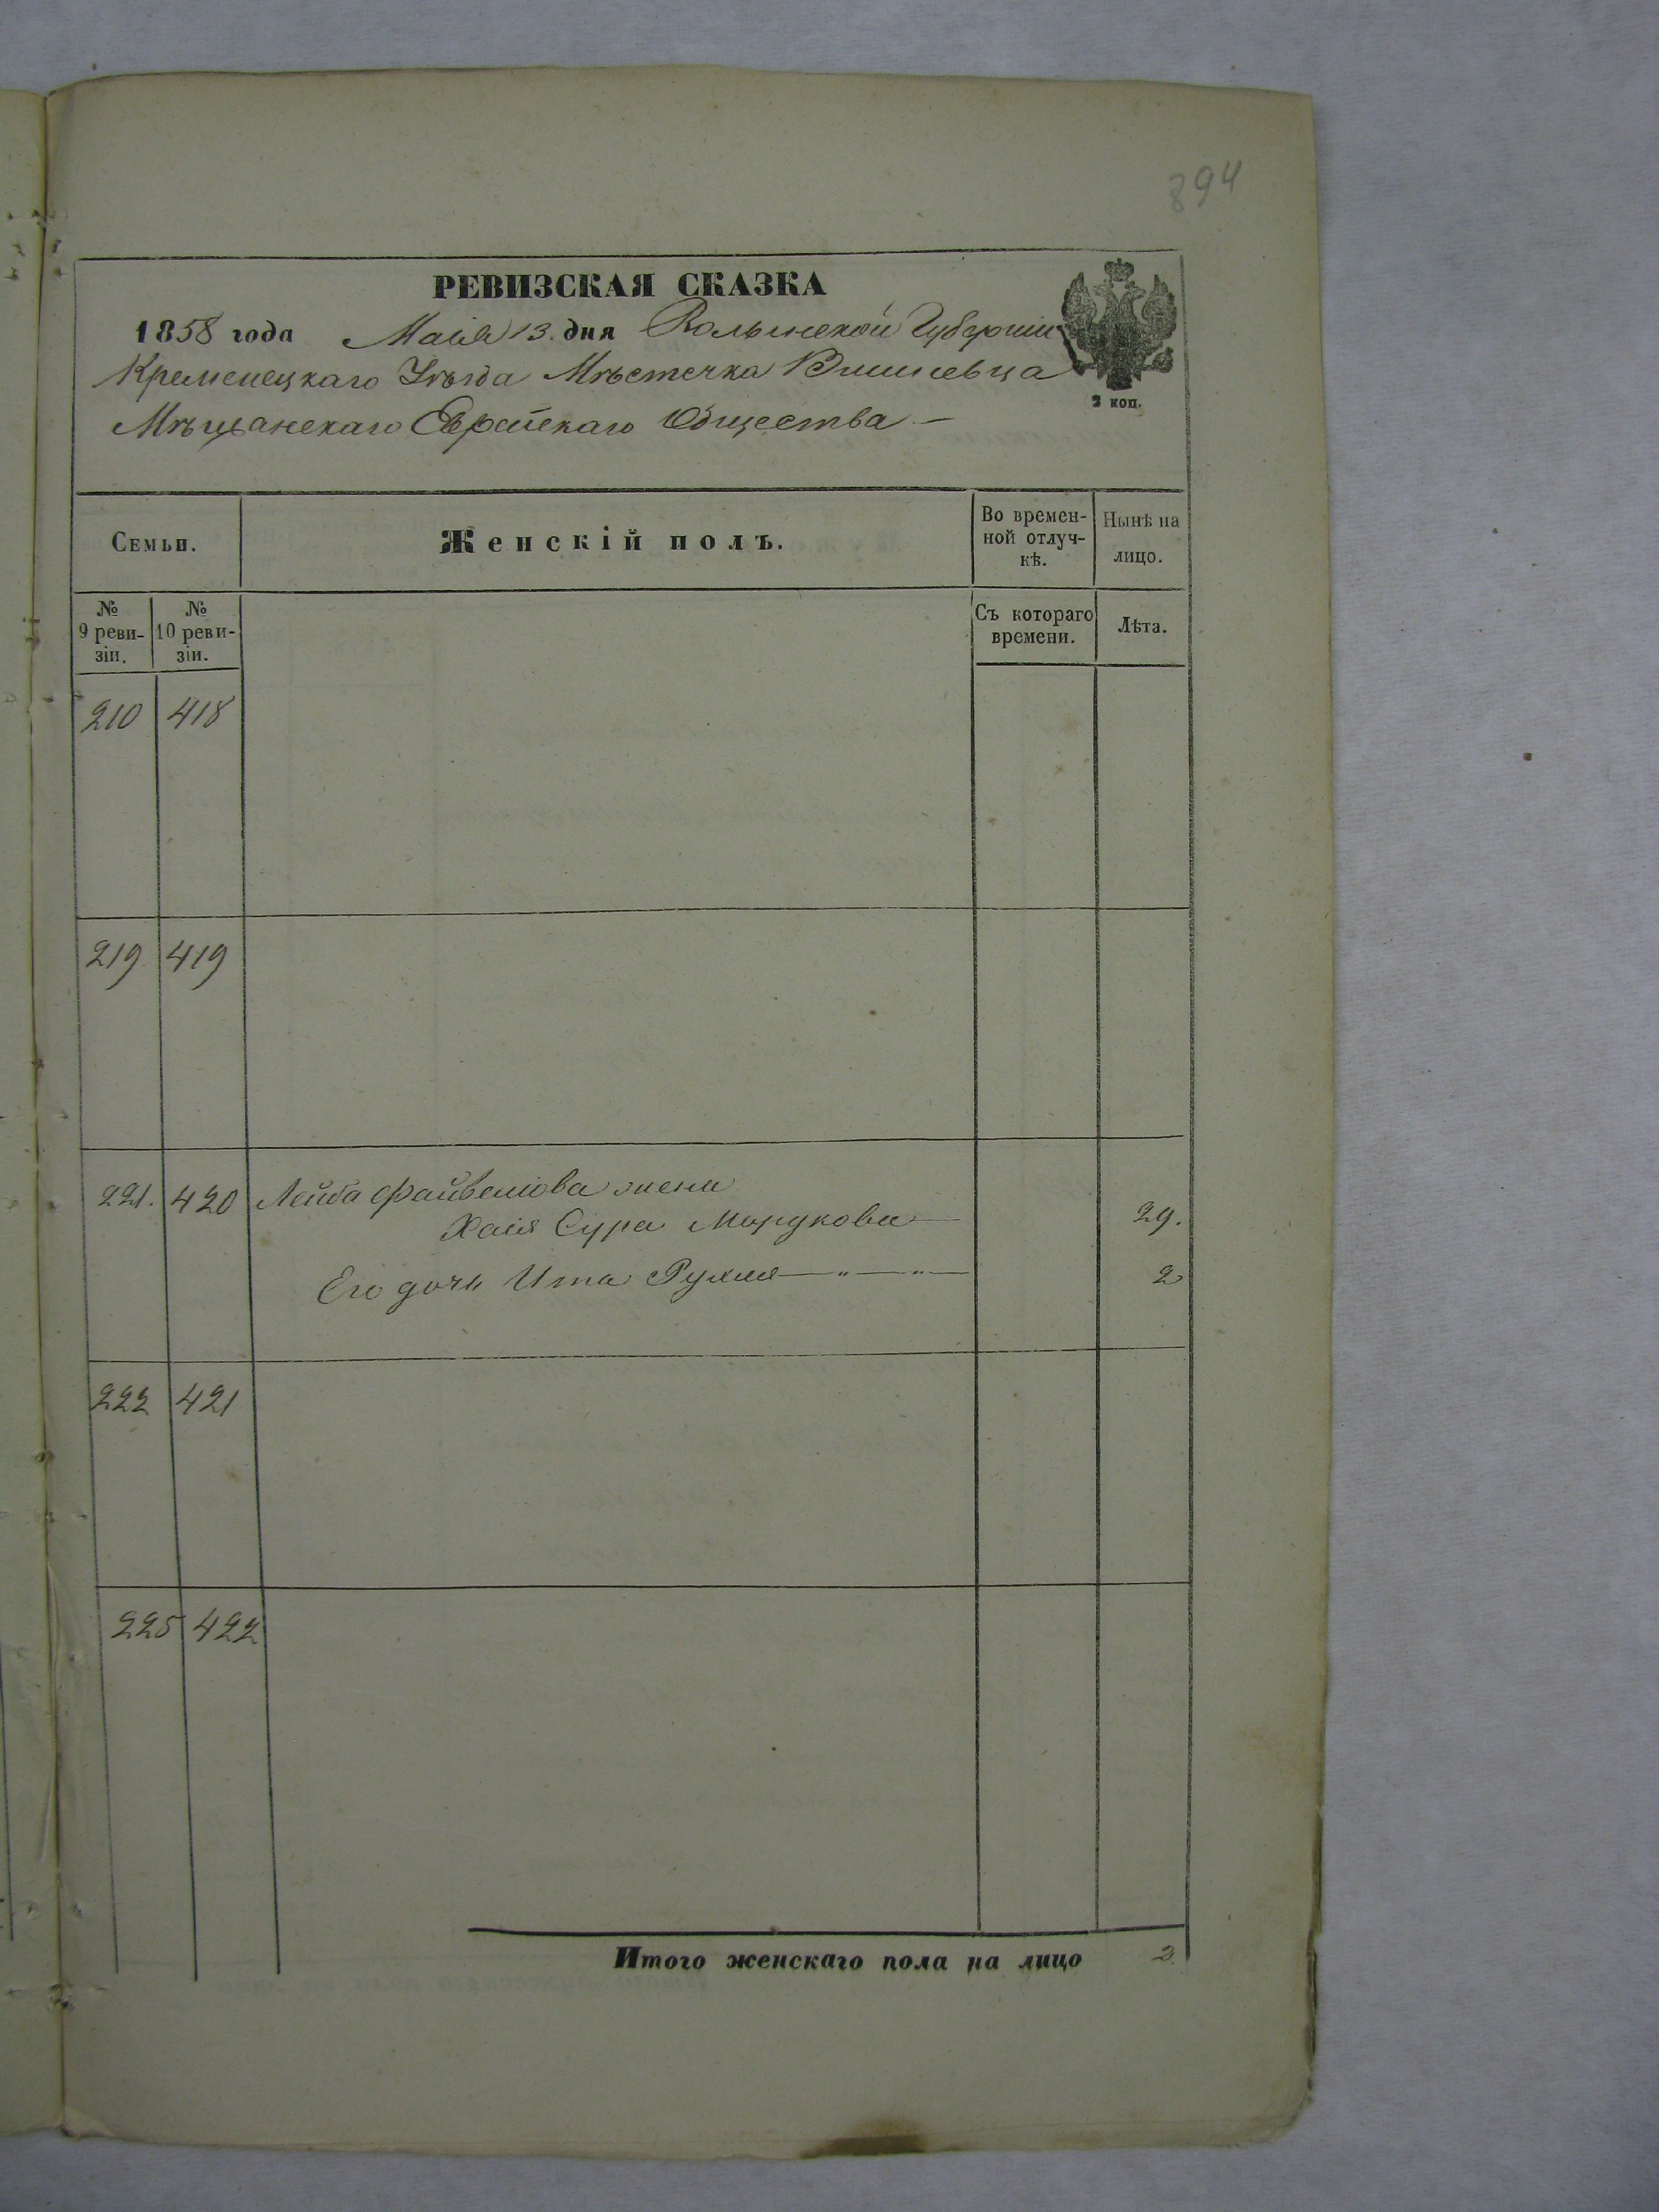 894
РЕВИЗСКАЯ СКАЗКА
1858 года Маія 13. дня Волынской Губерніи
Кременецкаго Уѣзда Мѣстечка Вишневца
2 коп.
Мѣщанскаго Еврейскаго Общества —
Семьи.
Женскій полъ.
Во времен-
ной отлуч-
кѣ.
Нынѣ на
лицо.
№
9 реви-
зіи.
№
10 реви-
зіи.
Съ котораго
времени.
Лѣта.
210 418
219 419
221. 420 Лейба Файвелова жена
Хаія Сура Мордкова — 29.
Его дочь Ита Рухля — " — " — 2
222 421
225 422
Итого женскаго пола на лицо 2.